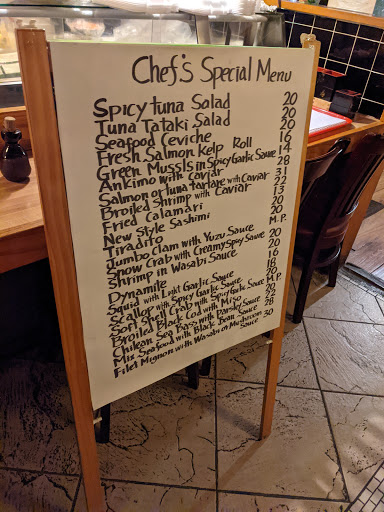 Chef's Special Menu
Spicy tuna Salad 20
Tuna Tataki Salad 20
Seafood Ceviche 20
Fresh Salmon Kelp Roll 16
Green Mussls in Spicy Garlic Sauce 14
Ankimo with Caviar 28
Salmon or tuna tartare with Caviar 31
Broiled Shrimp with Caviar 22
Fried Calamari 13
New Style Sashimi 20
Tiradito M.P.
Jumbo Clam with Yuzu Sauce 20
Snow Crab with Creamy Spicy Sauce 20
Shrimp in Wasabi Sauce 16
Dynamite 18
Squid with Light Garlic Sauce 20
Scallop with Spicy Garlic Sauce M.P
Soft Shell Crab with Spicy Garlic Sauce
Broiled Black Cod with Miso
Chilean Sea Bass with Sauce
Mix Seafood with Black Bean Sauce 28
Filet Mignon with Wasabi or Mushroom Sauce 30